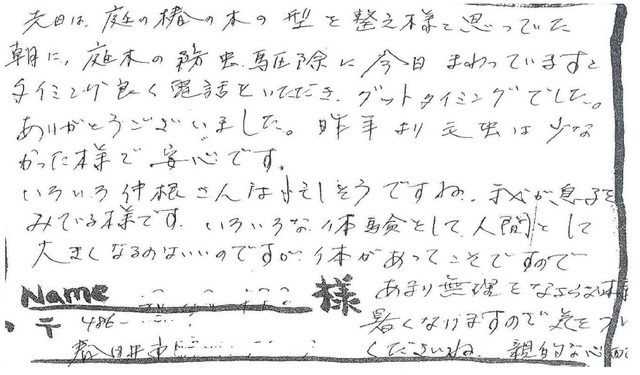 先日は、庭の椿の木の型を整え様と思っていた
朝に、庭木の防虫駆除に今日まわっていますと
タイミング良く電話をいただき、グットタイミングでした。
ありがとうございました。昨年より毛虫は少な
かった様で安心です。
いろいろ仲根さんはいそがしそうですね。我が息子を
みている様です。いろいろな体験として人間として
大きくなるのはいいのですが、体があってこそですので
Name 様 あまり無理をなさらぬ様
〒486- 暑くなりますので気をつ
春日井市 くださいね。親的な心